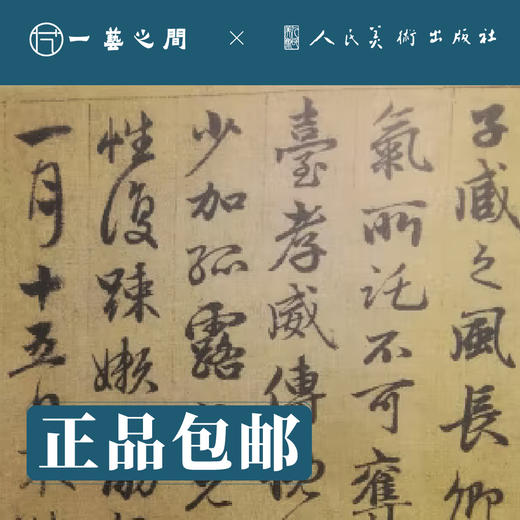 一藝之間 × 人民美術出版社
子臧之風長卿
氣所託不可奪
臺孝威傳慨
少加孤露
性復疎嬾
一月十五日
正品包邮